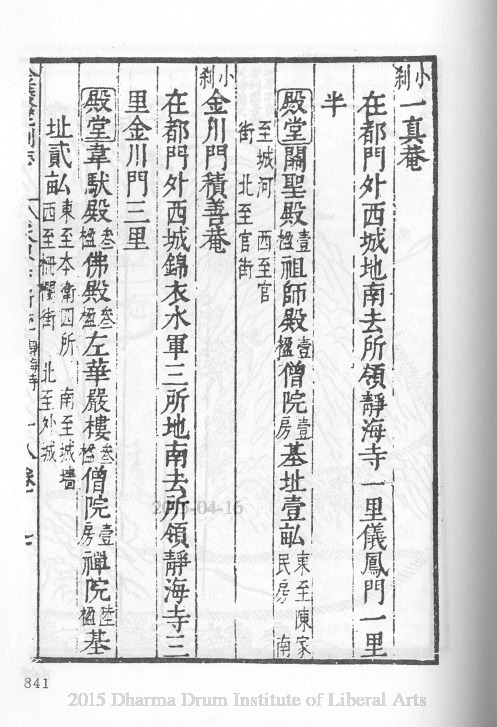 小刹一真菴
在都門外西城地南去所領靜海寺一里儀鳳門一里
半
殿堂關聖殿壹楹祖師殿壹楹僧院壹房基址壹畝東至陳家民房 南
至城河 西至官街 北至官街
小刹金川門積善菴
在都門外西城錦衣水軍三所地南去所領靜海寺三
里金川門三里
殿堂韋馱殿叁楹佛殿叁楹左華嚴樓叁楹僧院壹房禪院陸楹基
址貳畝東至本衛四所 南至城墻西至柵欄街 北至外城
841
2015-04-16
2015 Dharma Drum Institute of Liberal Arts